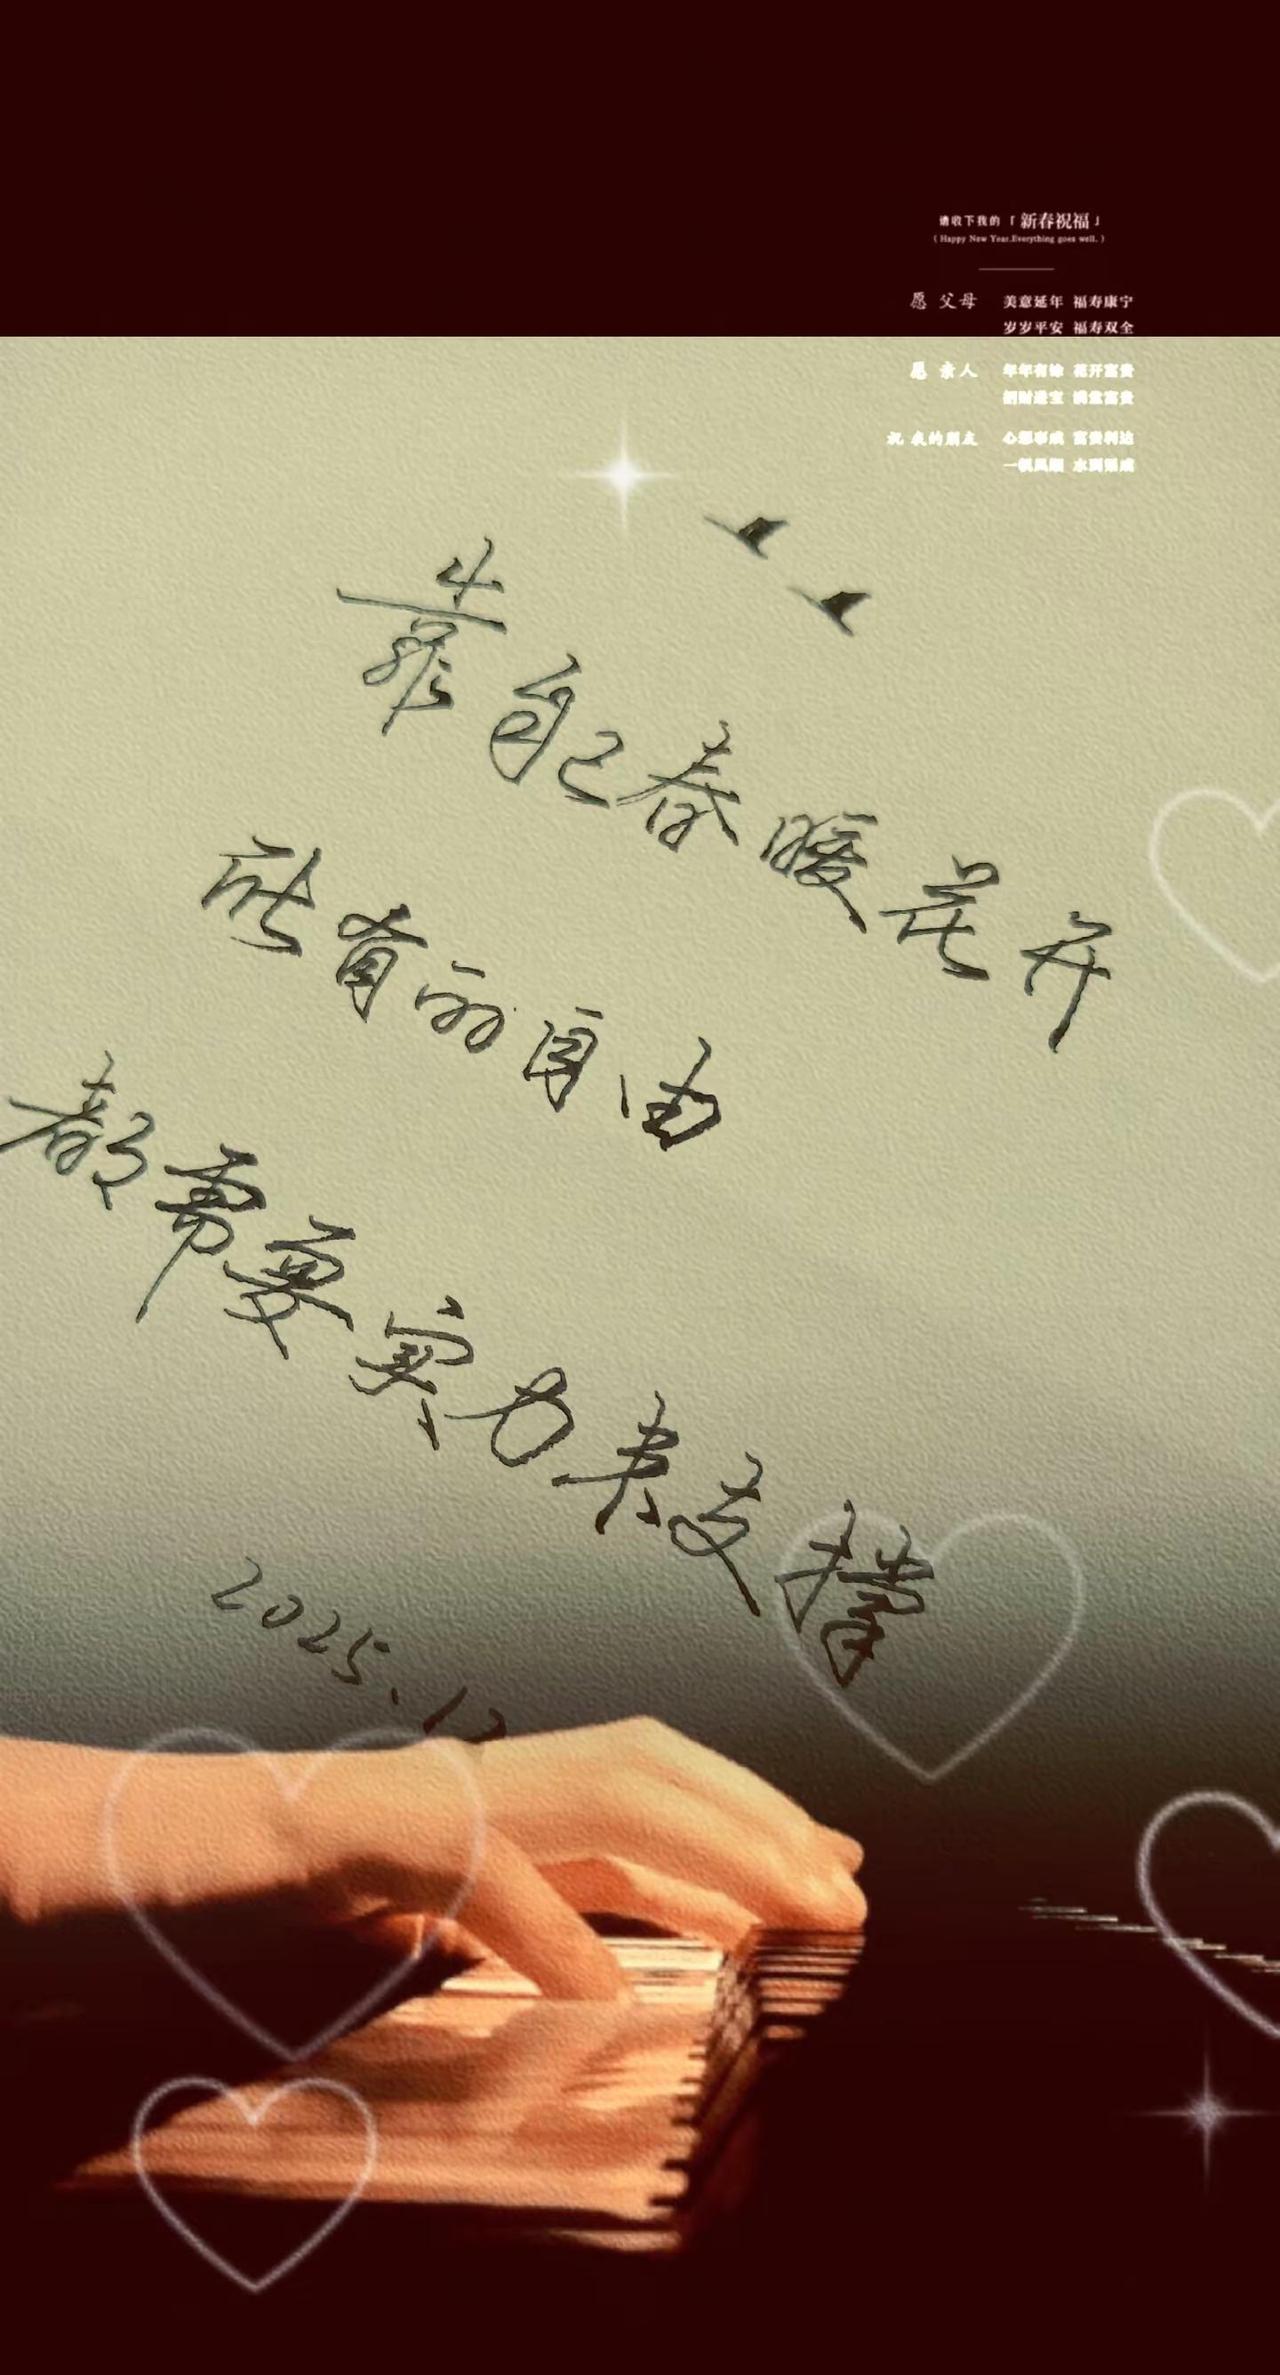 请收下我的「新春祝福」
( Happy New Year.Everything goes well. )
愿 父母 美意延年 福寿康宁
岁岁平安 福寿双全
愿 亲人 年年有余 花开富贵
招财进宝 满堂富贵
祝 我的朋友 心想事成 富贵利达
一帆风顺 水到渠成
靠自己春暖花开
所有的自由
都需要实力来支撑
2025.12